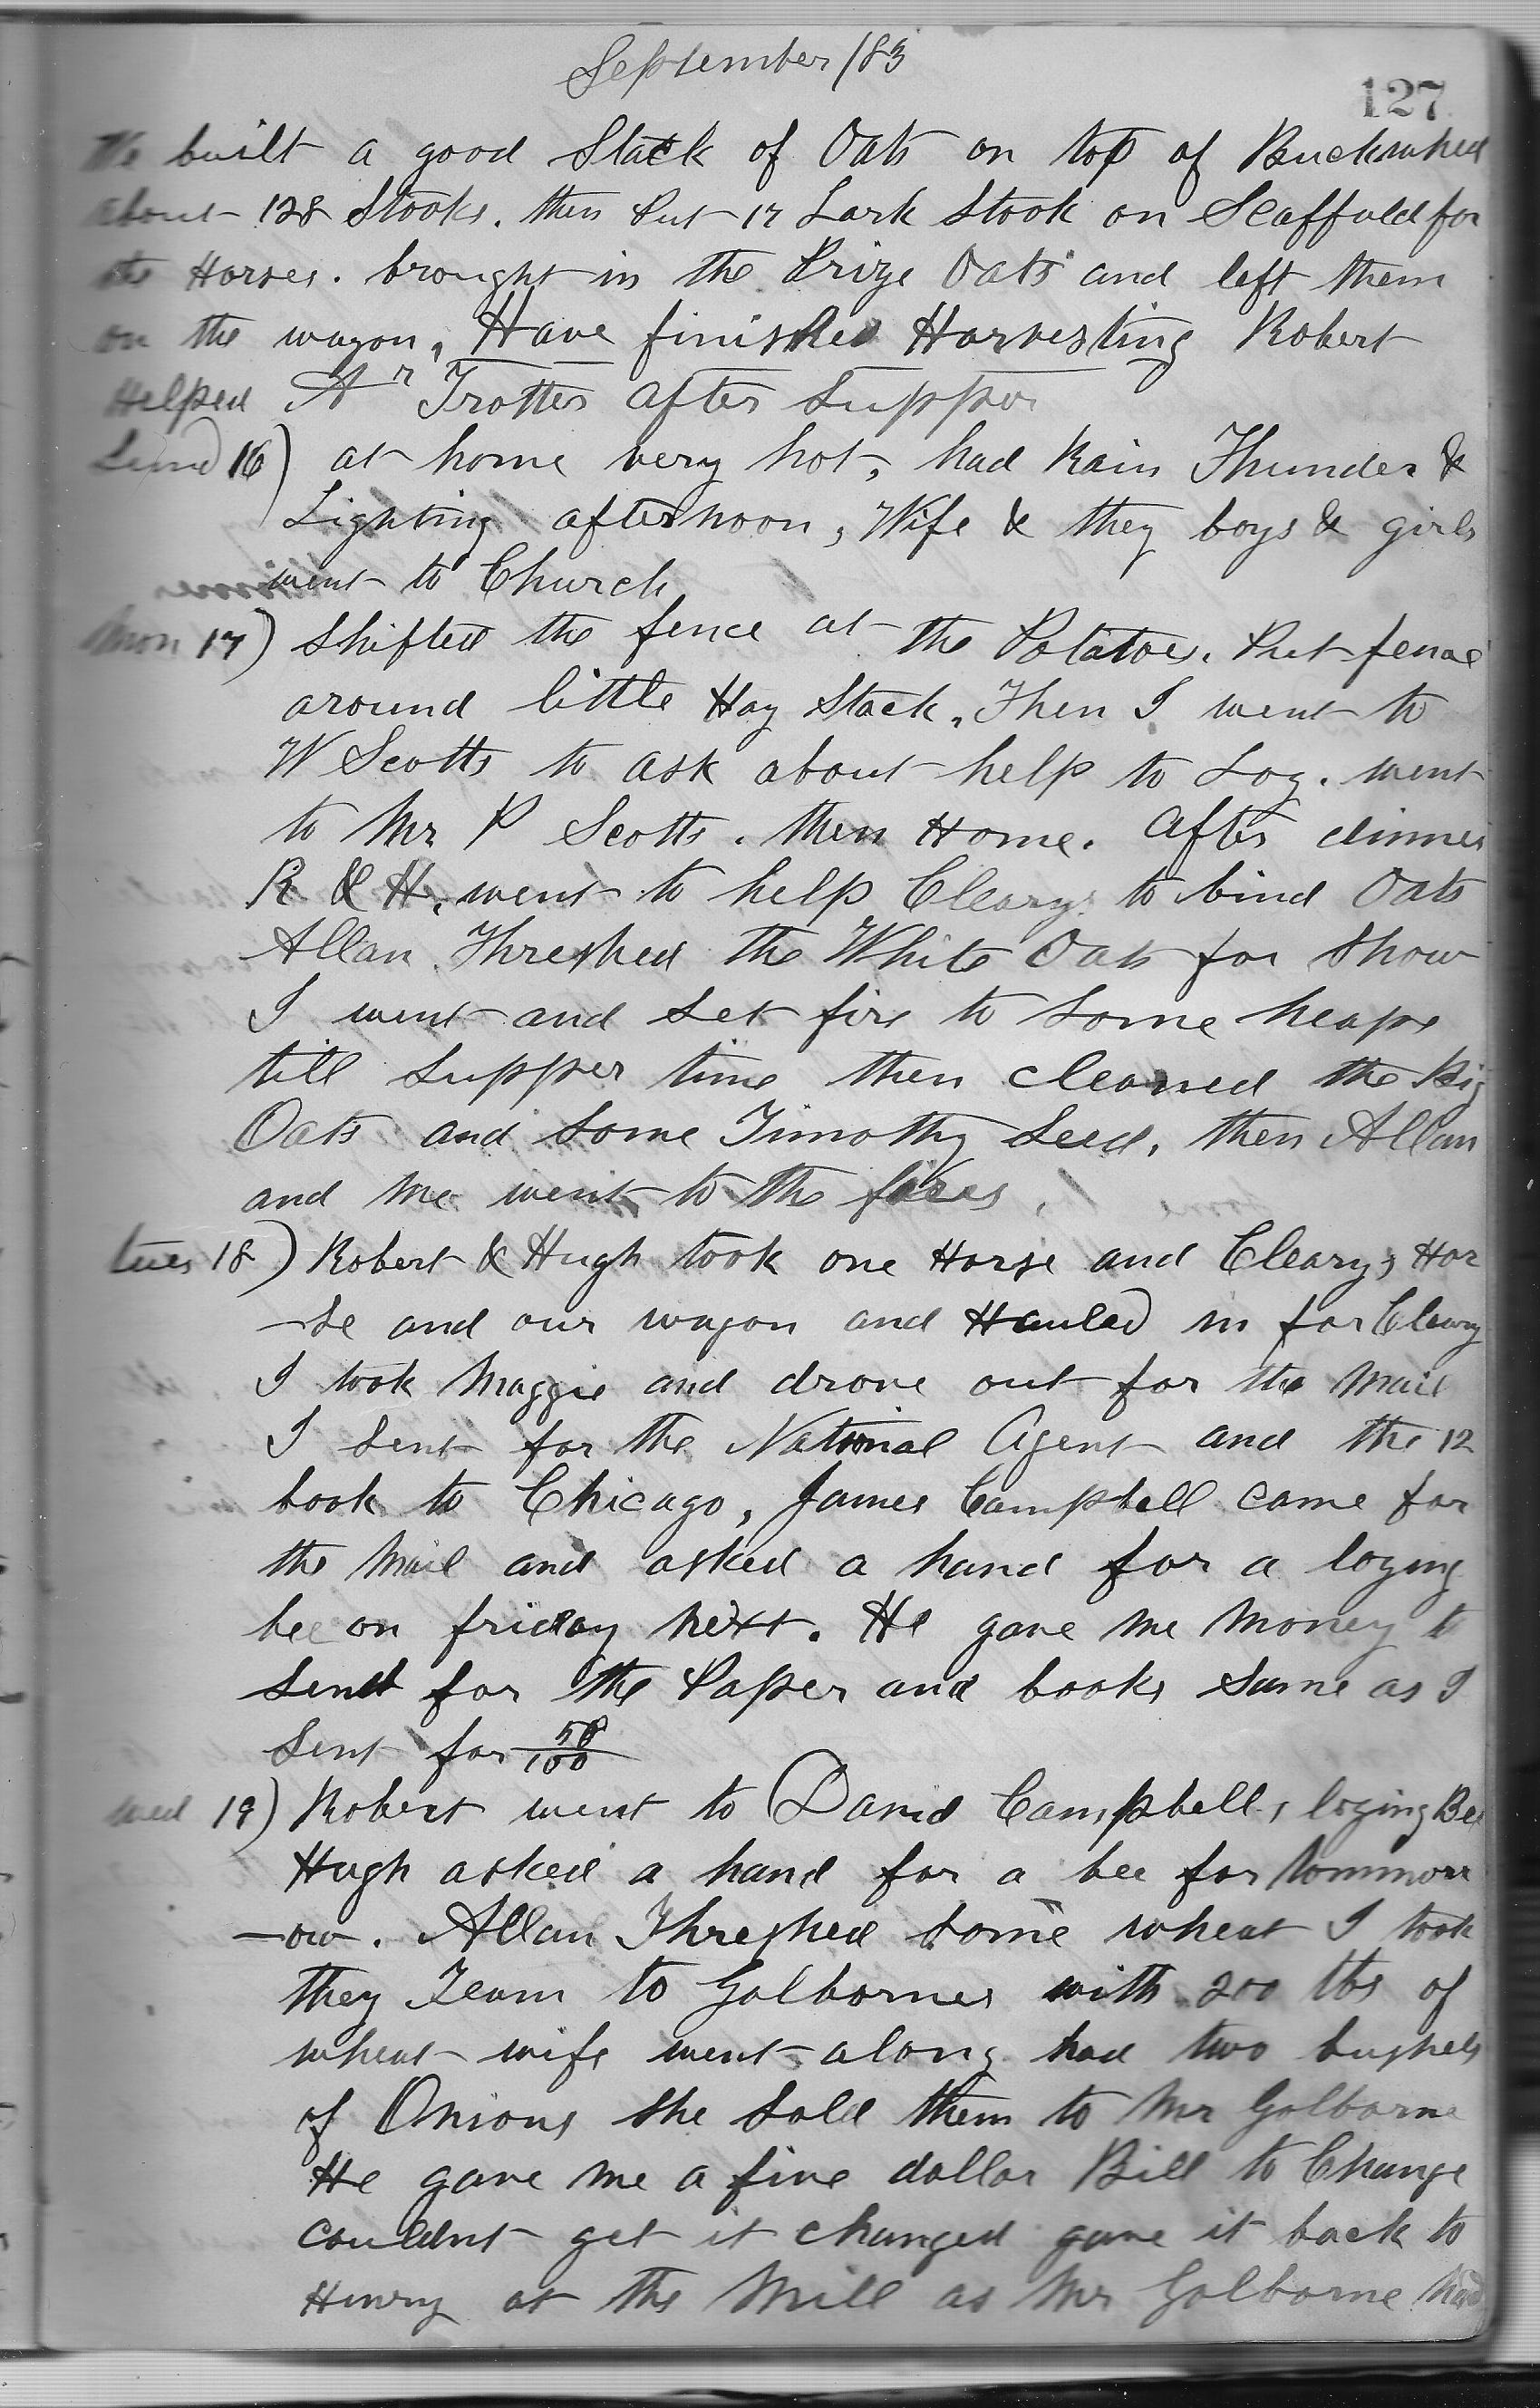 September /83
127
We built a good Stack of Oats on top of Buckwheat
about 128 Stooks. then Put 17 Lark Stook on Scaffold for
the Horses. brought in the Prize Oats and left them
on the wagon, Have finished Harvesting Robert
Helped Ar Trotter after Supper
Sund 16) at home very hot, had Rain Thunder &
Lighting afternoon, Wife & they boys & girls
went to Church
Mon 17) Shifted the fence at the Potatoes. Put fence
around little Hay Stack. Then I went to
W Scotts to ask about help to Log. went
to Mr P Scotts. then Home. After dinner
R & H. went to help Cleary to bind Oats
Allan Threshed the White Oats for Show
I went and Set fire to Some heaps
till Supper time then cleaned the Big
Oats and Some Timothy Seed, then Allan
and me went to the fires.
tues 18) Robert & Hugh took one Horse and Clearys Hor
-se and our wagon and Hauled in for Cleary
I took Maggie and drove out for the Mail
I Sent for the National Agent and the 12
book to Chicago, James Campbell came for
the Mail and asked a hand for a loging
bee on friday next. He gave me Money to
Send for the Paper and books Same as I
Sent for 50/100
Wed 19) Robert went to David Campbells loging Bee
Hugh asked a hand for a bee for tommorr
-ow. Allan Threshed Some wheat I took
they Team to Golbornes with 200 lbs of
wheat wife went along had two bushels
of Onions She Sold them to Mr Golborne
He gave me a five dollar Bill to Change
couldnt get it changed gave it back to
Henry at the Mill as Mr Golborne had